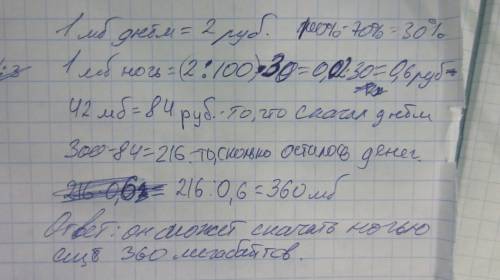 1 мб днём = 2 руб. 100%-70%=30%
1 мб ночь = (2:100)·30=0,02·30=0,6 руб
42 мб = 84 руб.-то, что скачал днём
300-84=216-то, сколько осталось денег.
216:0,6=360 мб
Ответ: он сможет скачать ночью
ещё 360 мегабайтов.